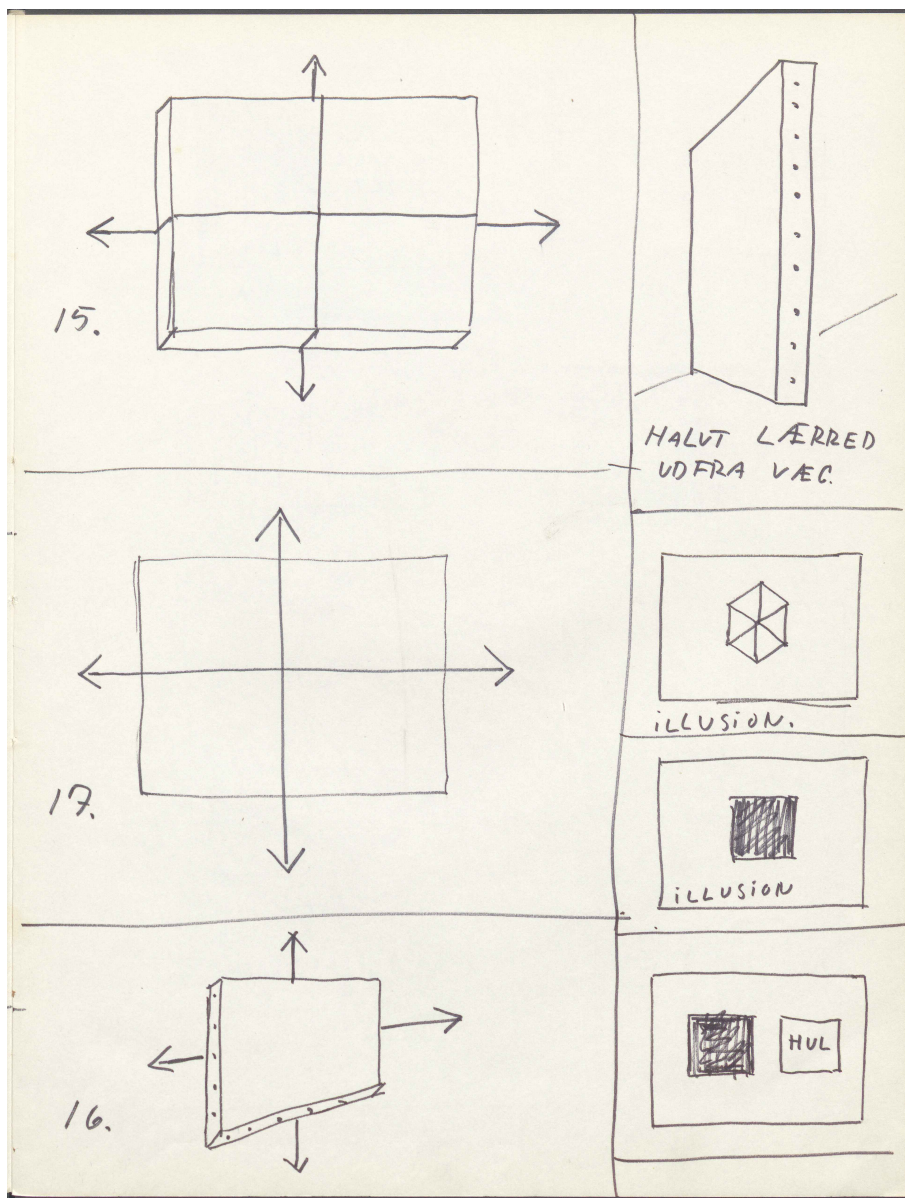 15.
HALVT LÆRRED
UDFRA VÆG.
17.
ILLUSION.
ILLUSION
16.
HUL